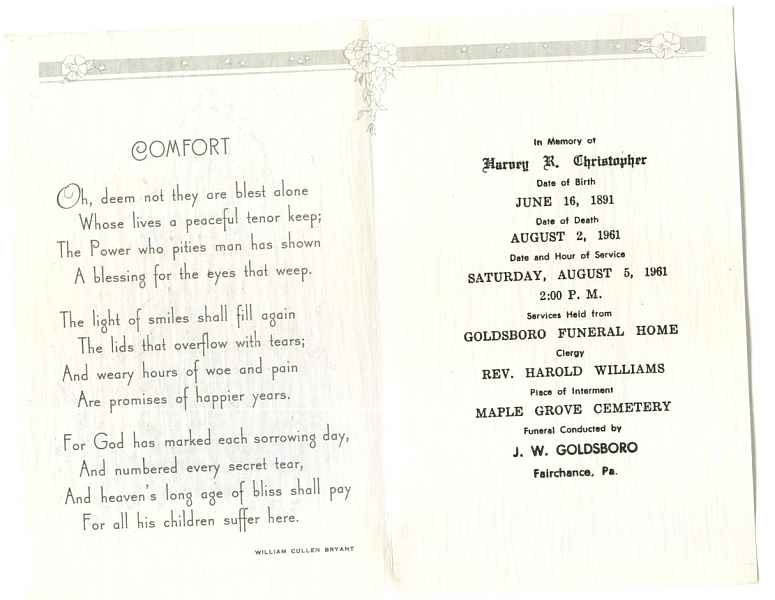 COMFORT
Oh, deem not they are blest alone
Whose lives a peaceful tenor keep;
The Power who pities man has shown
A blessing for the eyes that weep.
The light of smiles shall fill again
The lids that overflow with tears;
And weary hours of woe and pain
Are promises of happier years.
For God has marked each sorrowing day,
And numbered every secret tear,
And heaven's long age of bliss shall pay
For all his children suffer here.
WILLIAM CULLEN BRYANT
In Memory of
Harvey R. Christopher
Date of Birth
JUNE 16, 1891
Date of Death
AUGUST 2, 1961
Date and Hour of Service
SATURDAY, AUGUST 5, 1961
2:00 P. M.
Services Held from
GOLDSBORO FUNERAL HOME
Clergy
REV. HAROLD WILLIAMS
Place of Interment
MAPLE GROVE CEMETERY
Funeral Conducted by
J. W. GOLDSBORO
Fairchance, Pa.